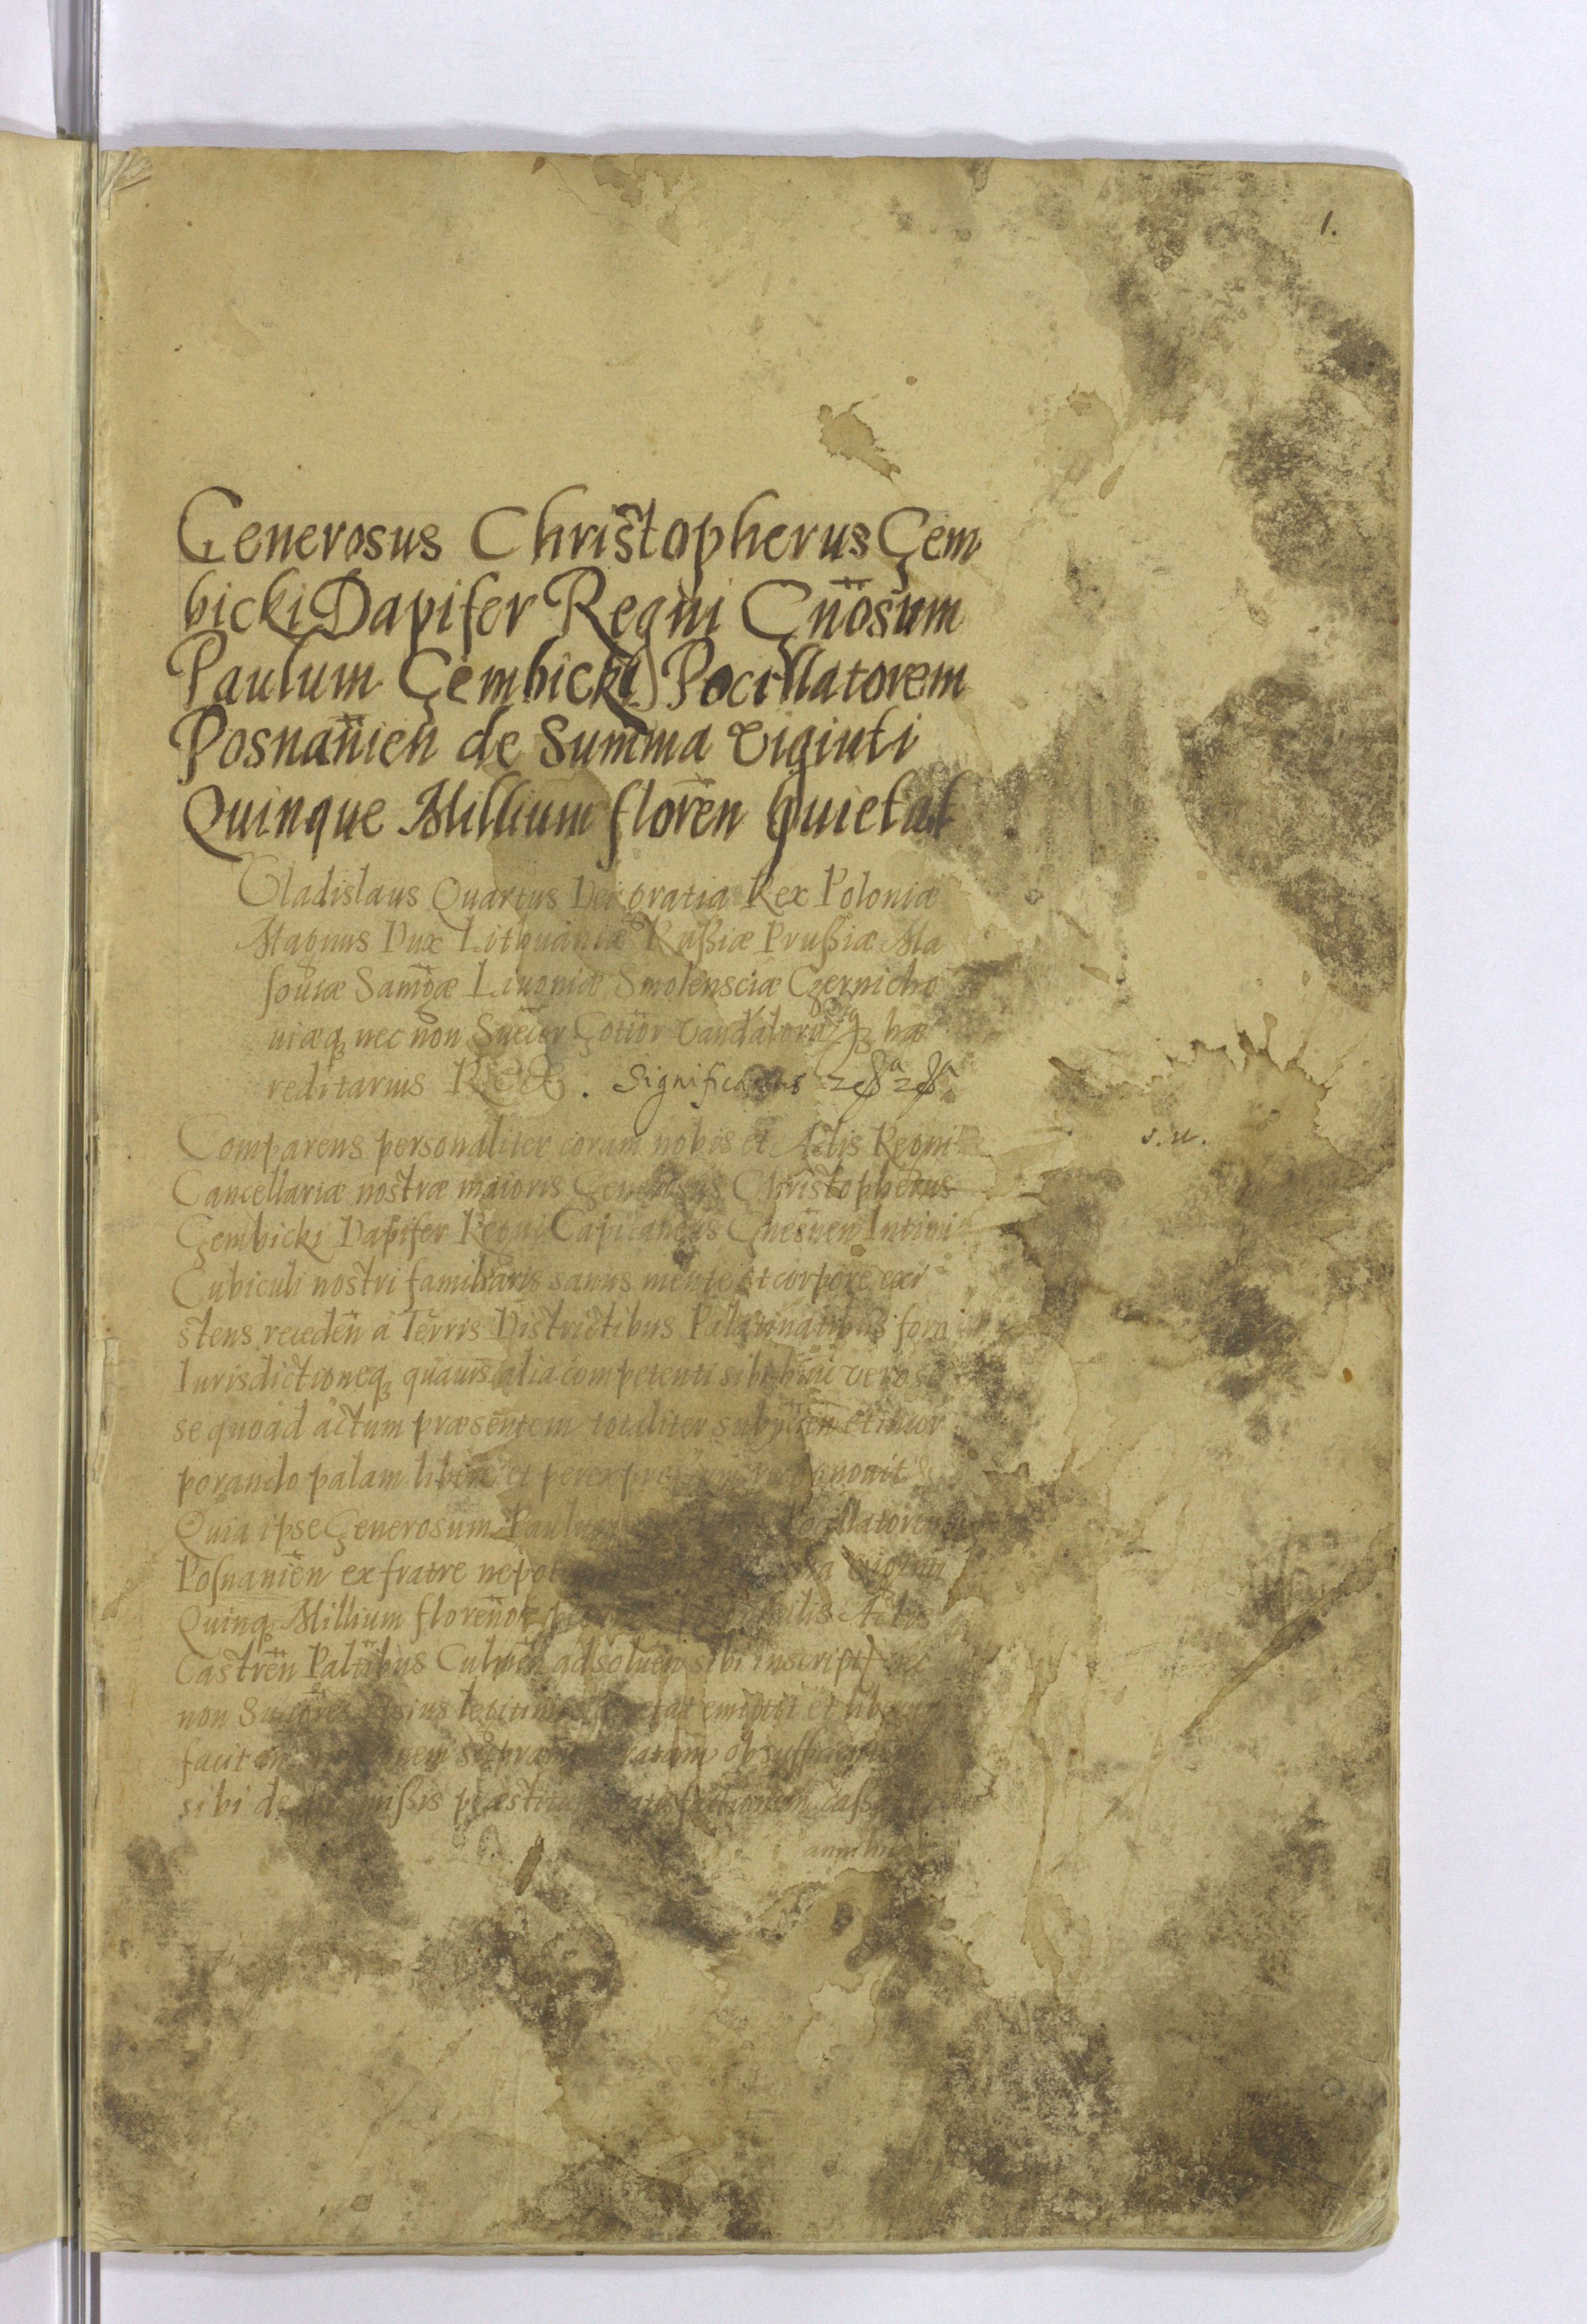 1.
Generosus Christopherus Gem
bicki Dapifer Regni Gn̄osum
Paulum Gembicki Pocillatorem
Posnan̄ien de Summa Viginti
Quinque Millium floren̄ quietat
Vladislaus Quartus Dei gratia Rex Poloniæ
Magnus Dux Lithuaniæ Rußiæ Prußiæ Ma
souiæ Sam̄æ Liuoniæ Smolensciæ Czernicho
uiæq nec non Suecor Gottor Vandalorūq hæ
reditarius REX. Significamus
Comparens personaliter coram nobis et Actis Regni
s. n.
Cancellariæ nostræ maioris Generosus Christopherus
Gembicki Dapifer Regni Capitaneus Gnesnen Intimi
Cubiculi nostri familiaris sanus mente et corpore exi
stens receden̄ à Terris Districtibus Palatinatibus foro
Iurisdictioneq quauis alia competenti sibi huic vero
se quoad actum præsentem totaliter subijcien̄ et incor
porando palam libere et per expressum recognouit
Quia ipse Generosum Paulum Pocillatorem
Posnanien̄ ex fratre Viginti
Quinq Millium floren̄or Actis
Castren̄ Palt̄ibus Culmen̄ ad soluen̄ sibi inscript nec
non Succores ipsius legitimos quietat emittit et liberum
facit
sibi de præmißis satisfactionem